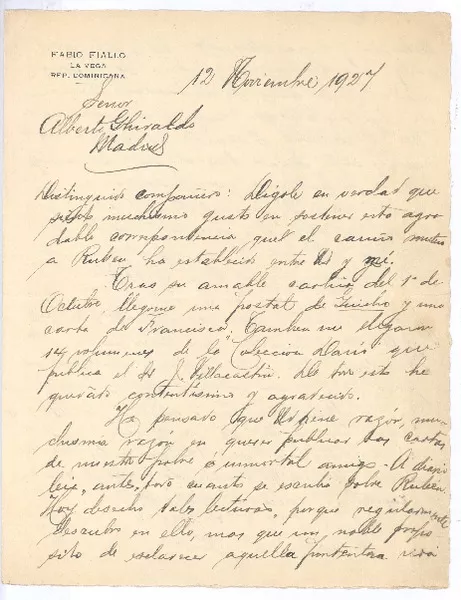 FABIO FIALLO
LA VEGA
REP. DOMINICANA
12 Noviembre, 1927
Señor
Alberto Ghiraldo
Madrid
Distinguido compañero: Dígole en verdad que
siento muchísimo gusto en sostener esta agra-
dable correspondencia que el cariño mutuo
a Ruben ha establecido entre Ud y mí.
Tras su amable cartica del 1º de
Octubre, llegome una postal de Guicho y una
carta de Francisca. Tambien me llegaron
14 volúmenes de la "Colección Darío" que
publica el Sr J. Villacastín. De todo esto he
quedado contentísimo y agradecido.
He pensado que Ud tiene razón, mu-
chísima razon en querer publicar las cartas
de nuestro pobre é inmortal amigo. A diario
leía, antes, todo cuanto se escribía sobre Ruben.
Hoy desecho tales lecturas, porque regularmente
descubro en ello, mas que un noble propo-
sito de esclarecer aquella portentosa vida